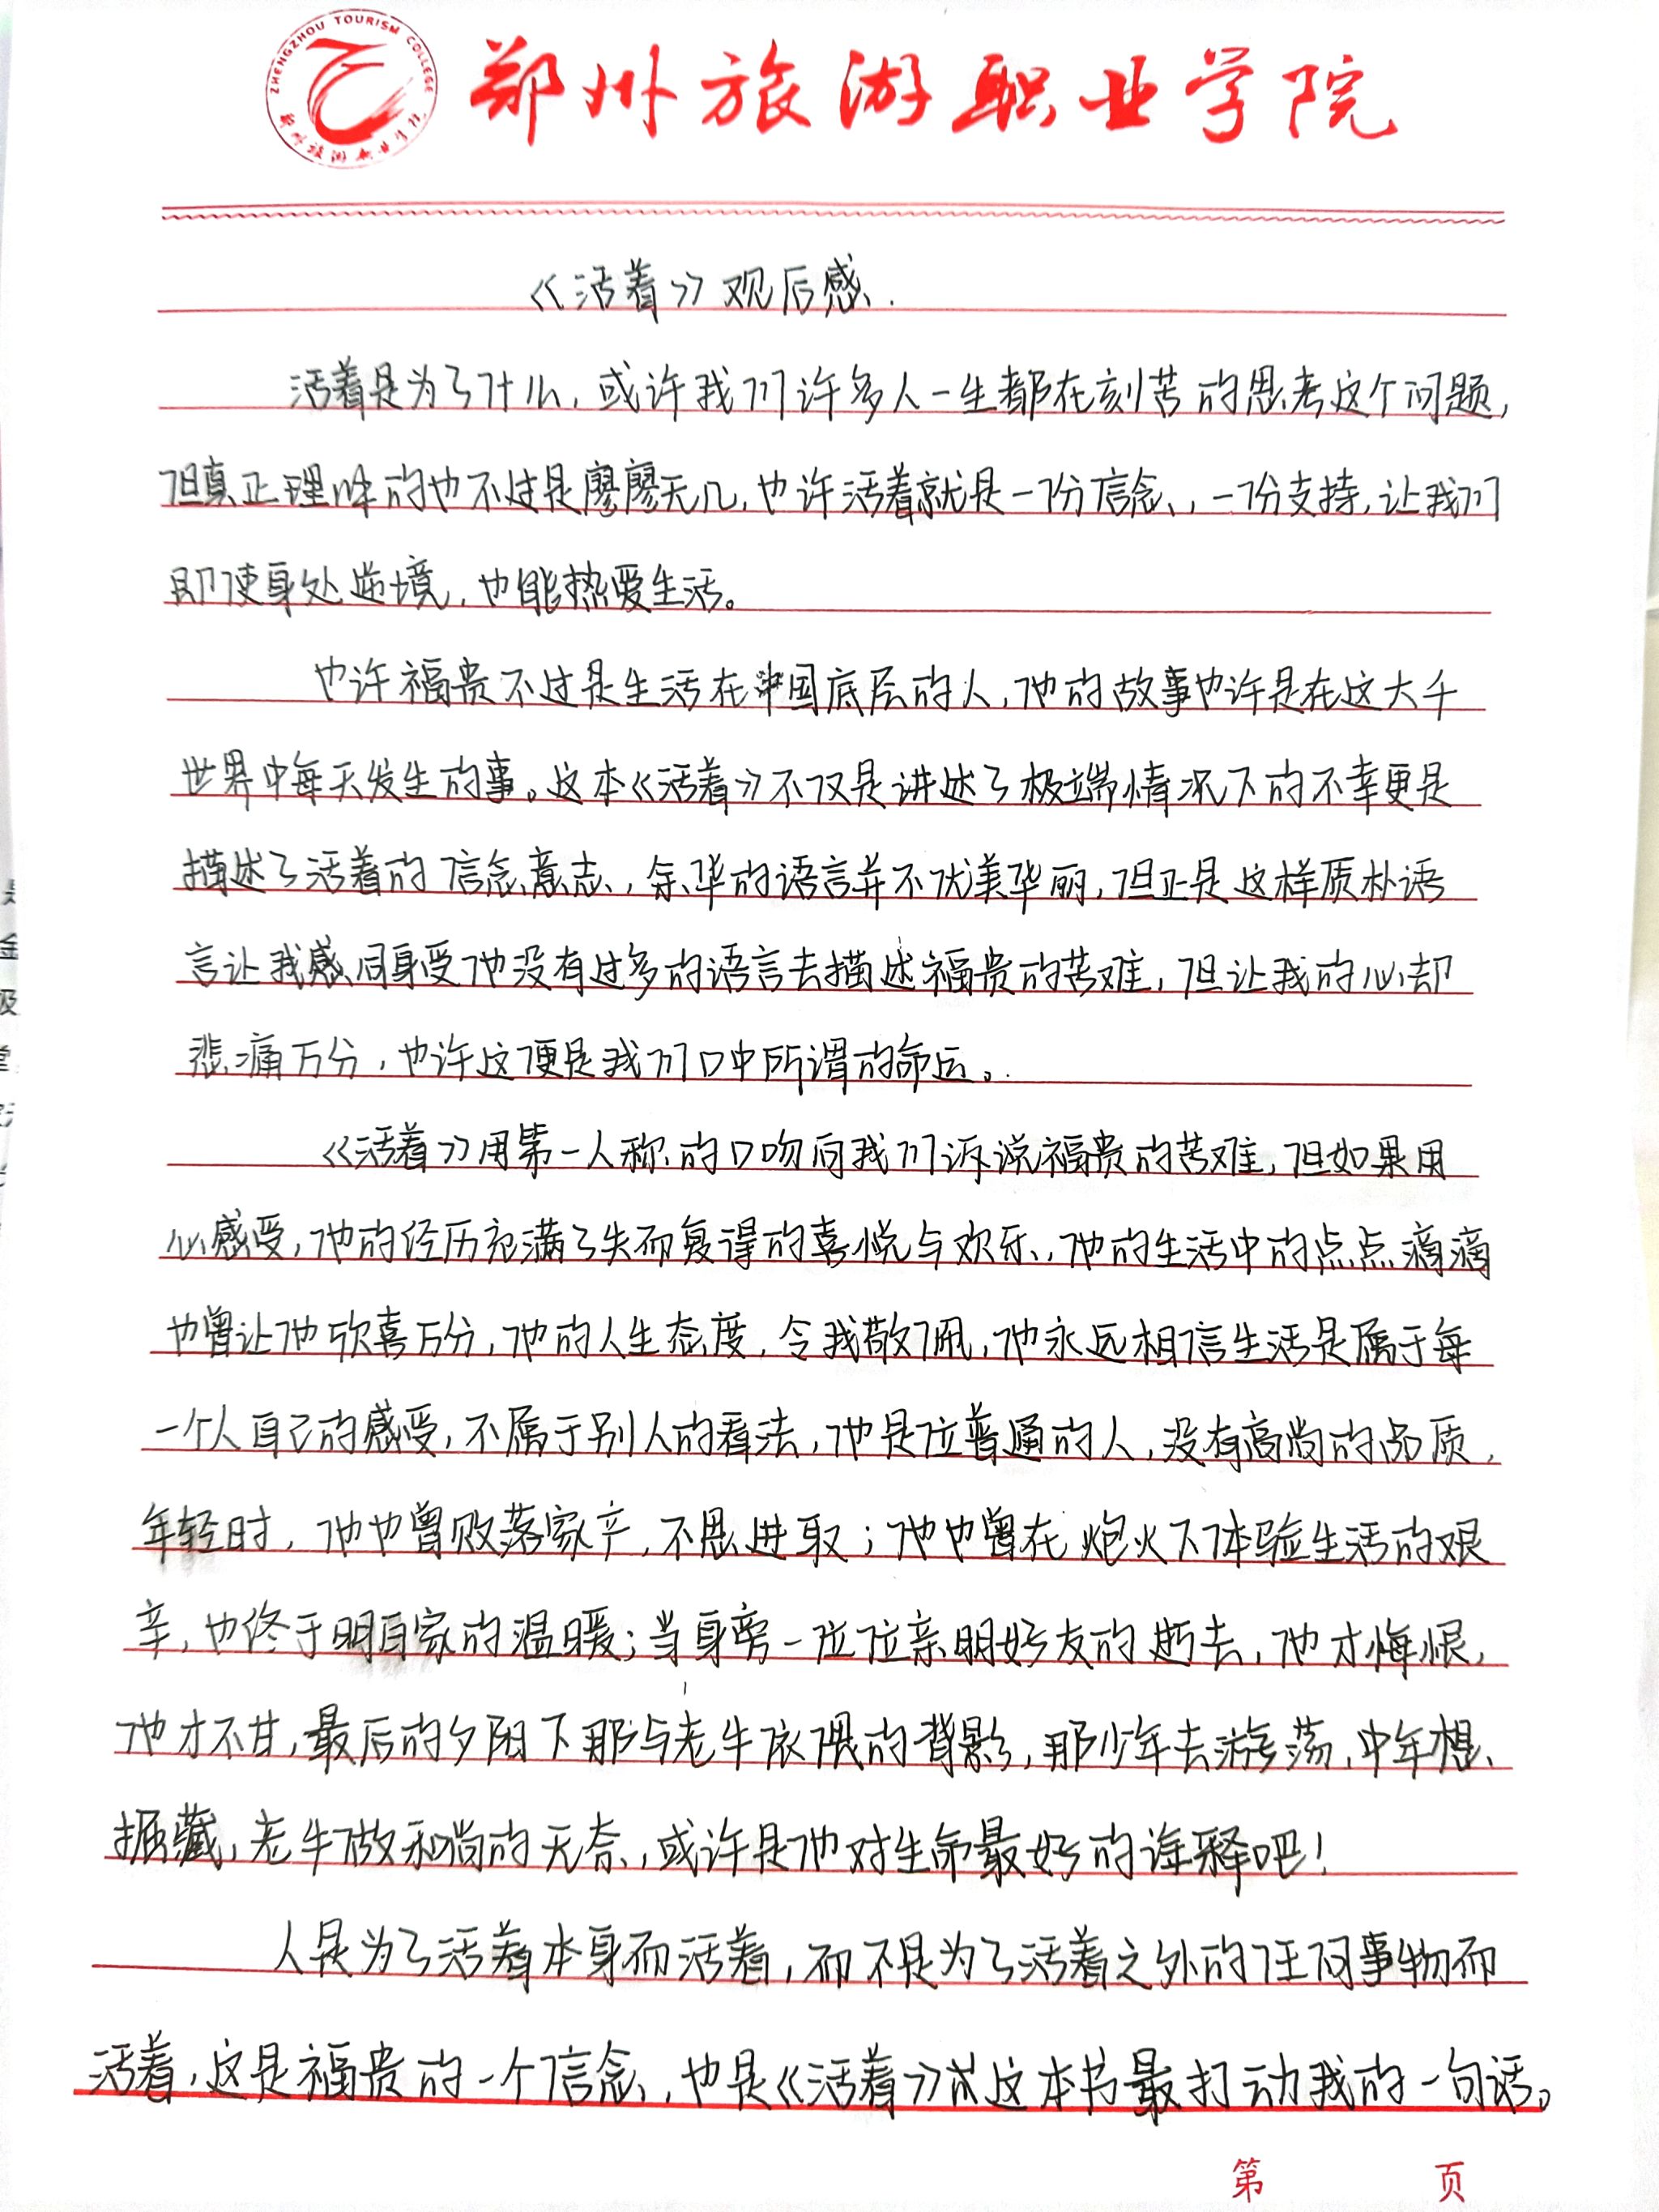 ZHENGZHOU TOURISM COLLEGE
郑州旅游职业学院
郑州旅游职业学院
《活着》观后感.
活着是为了什么,或许我们许多人一生都在刻苦的思考这个问题,
但真正理味的也不过是廖廖无几,也许活着就是一份信念,一份支持,让我们
即使身处逆境,也能热爱生活。
也许福贵不过是生活在中国底层的人,他的故事也许是在这大千
世界中每天发生的事。这本《活着》不仅是讲述了极端情况下的不幸更是
描述了活着的信念意志,余华的语言并不优美华丽,但正是这样质朴语
言让我感同身受他没有过多的语言去描述福贵的苦难,但让我的心却
悲痛万分,也许这便是我们口中所谓的命运。
《活着》用第一人称的口吻向我们诉说福贵的苦难,但如果用
心感受,他的经历充满了失而复得的喜悦与欢乐,他的生活中的点点滴滴
也曾让他欣喜万分,他的人生态度,令我敬佩,他永远相信生活是属于每
一个人自己的感受,不属于别人的看法,他是位普通的人,没有高尚的品质,
年轻时,他也曾败落家产,不思进取;他也曾在炮火下体验生活的艰
辛,也终于明白家的温暖;当身旁一位位亲朋好友的逝去,他才悔恨,
他才不甘,最后的夕阳下那与老牛依偎的背影,那少年去游荡,中年想
掘藏,老牛做和尚的无奈,或许是他对生命最好的诠释吧!
人是为了活着本身而活着,而不是为了活着之外的任何事物而
活着,这是福贵的一个信念,也是《活着》这本书最打动我的一句话。
第 页